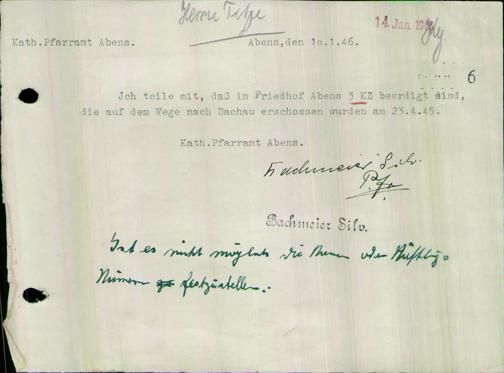 Herrn Tefze
14. Jan. 1946
Kath.Pfarramt Abens.
Abens,den 10.1.46.
6
Ich teile mit, daß im Friedhof Abens 3 KZ beerdigt sind,
die auf dem Wege nach Dachau erschossen wurden am 23.4.45.
Kath.Pfarramt Abens.
Bachmeier Silv.
Pfr.
Bachmeier Silv.
Ist es nicht möglich die Namen oder Häftlings-
Numern festzustellen.-